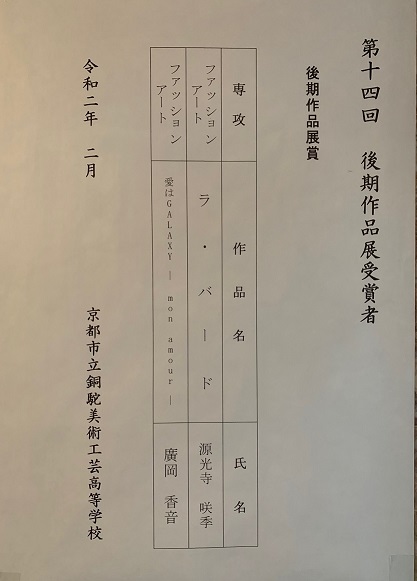 第十四回　後期作品展受賞者
後期作品展賞
専攻　作品名　氏名
ファッションアート　ラ・バード　源光寺　咲季
ファッションアート　愛はGALAXY ― mon amour ―　廣岡　香音
令和二年　二月
京都市立銅駝美術工芸高等学校